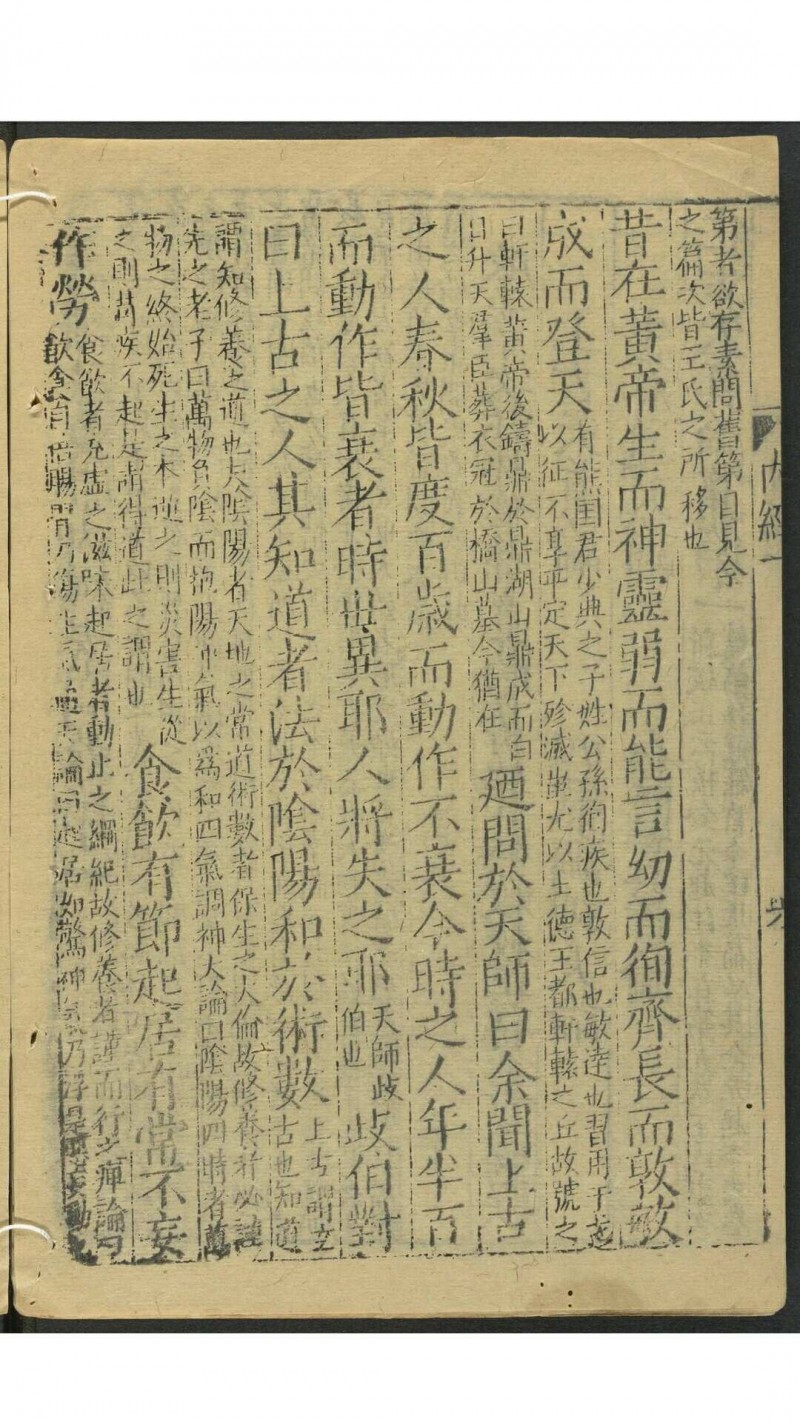 第者欲存素問舊第目見今
之篇次皆王氏之所移也
昔在黃帝生而神靈弱而能言幼而徇齊長而敦敏
成而登天
有熊國君少典之子姓公孫徇疾也敦信也敏達也習用干戈
以征不享平定天下殄滅蚩尤以土德王都軒轅之丘故號之
曰軒轅黃帝後鑄鼎於鼎湖山鼎成而白
日升天羣臣葬衣冠於橋山墓今猶在
廼問於天師曰余聞上古
之人春秋皆度百歲而動作不衰今時之人年半百
而動作皆衰者時世異耶人將失之耶
天師歧
伯也
歧伯對
曰上古之人其知道者法於陰陽和於術數
上古謂玄
古也知道
謂知修養之道也夫陰陽者天地之常道術數者保生之大倫故修養者必謹
先之老子曰萬物負陰而抱陽冲氣以爲和四氣調神大論曰陰陽四時者萬
物之終始死生之本逆之則災害生從
之則苛疾不起是謂得道此之謂也
食飲有節起居有常不妄
作勞
食飲者充虛之滋味起居者動止之綱紀故修養者謹而行之痺論曰
飲食自倍腸胃乃傷生氣通天論曰起居如驚神氣乃浮是惡妄動
內經一